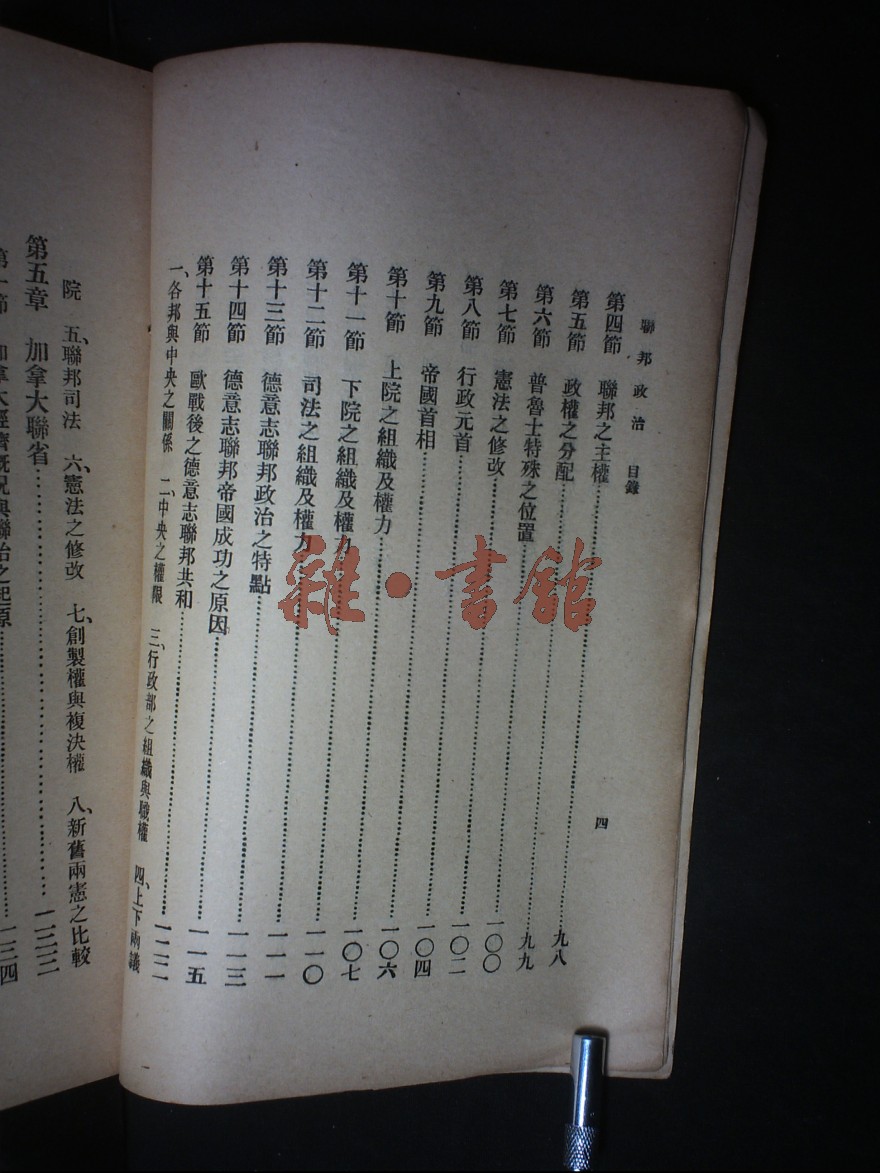 聯邦政治 目錄 四
第四節 聯邦之主權……九八
第五節 政權之分配……九九
第六節 普魯士特殊之位置……一〇〇
第七節 憲法之修改……一〇二
第八節 行政元首……一〇四
第九節 帝國首相……一〇六
第十節 上院之組織及權力……一〇七
第十一節 下院之組織及權力……一一〇
第十二節 司法之組織及權力……一一一
第十三節 德意志聯邦政治之特點……一一三
第十四節 德意志聯邦帝國成功之原因……一一五
第十五節 歐戰後之德意志聯邦共和……一二二
一、各邦與中央之關係 二、中央之權限 三、行政部之組織與職權 四、上下兩議
院 五、聯邦司法 六、憲法之修改 七、創製權與複決權 八、新舊兩憲之比較
第五章 加拿大聯省……一三三
第一節 加拿大經濟概況與聯治之起原……一三四
雜·書館